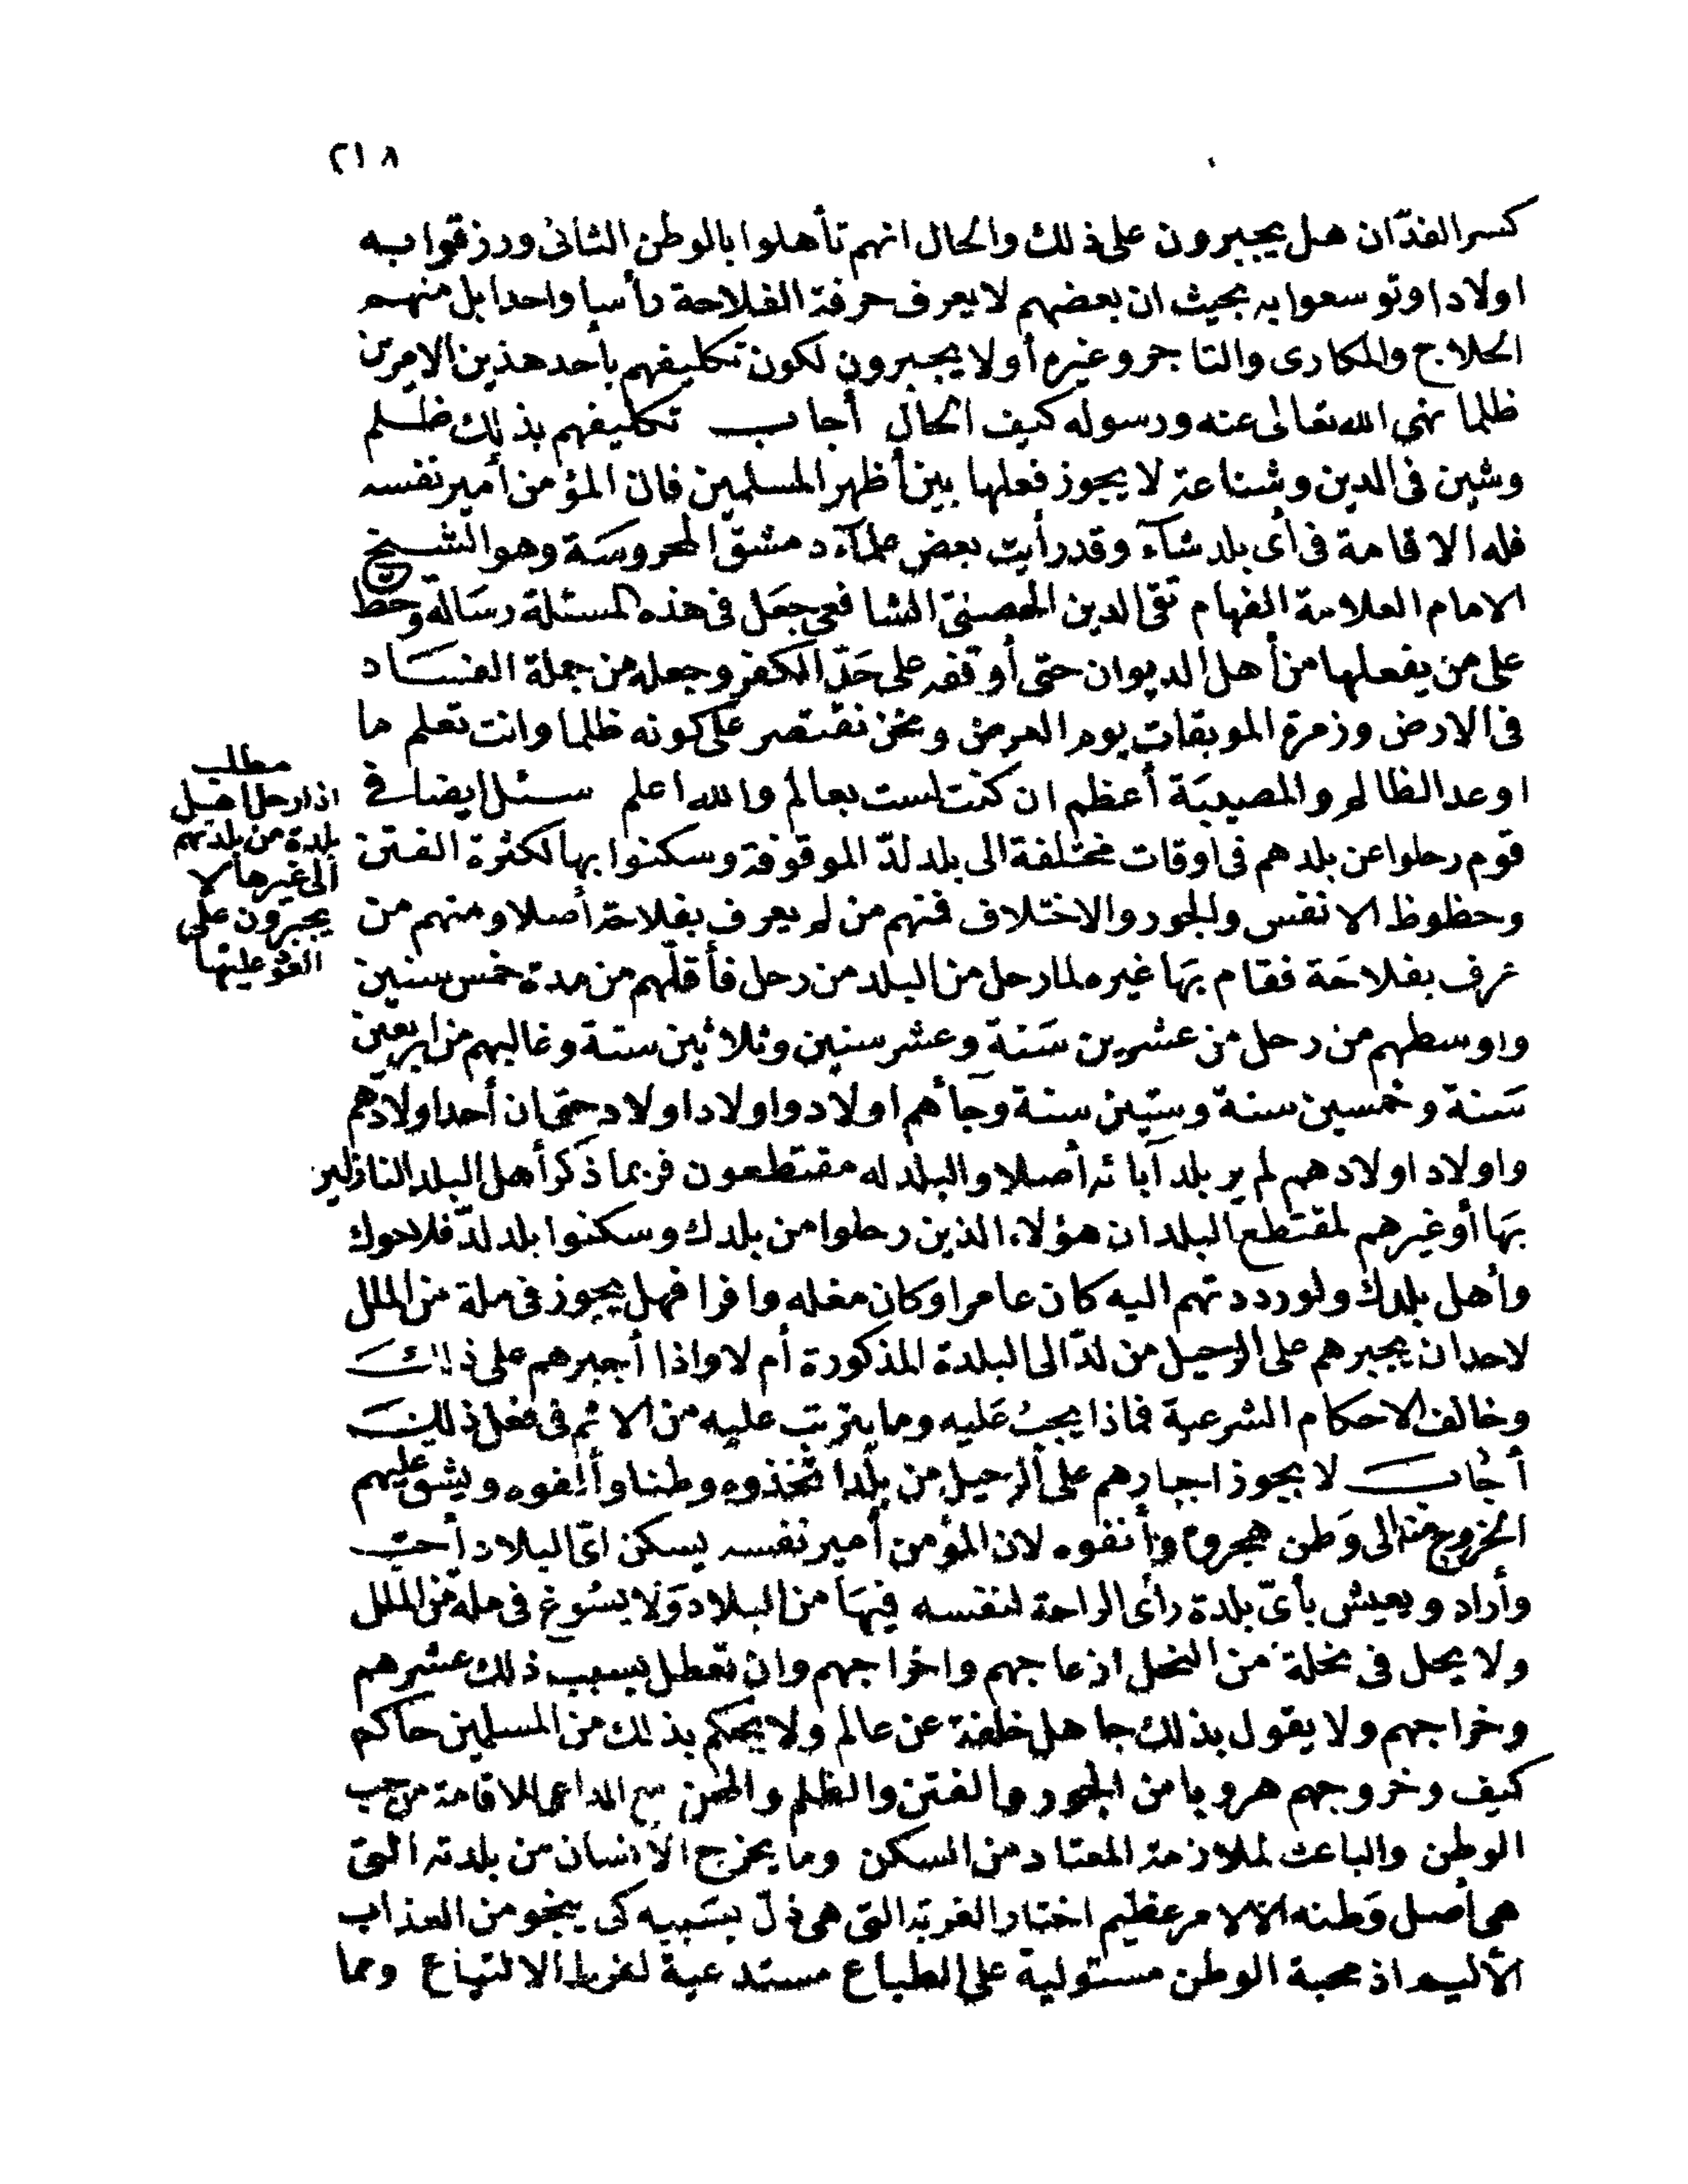 ٢١٨
كسر الفدّان هل يجبرون على ذلك والحال انهم تأهلوا بالوطن الثانى ورزقوا به
اولادا وتوسعوا به بحيث ان بعضهم لا يعرف حرفة الفلاحة رأسا واحدا بل منهم
الحلاج والمكارى والتاجر وغيره أو لا يجبرون لكون تكليفهم بأحد هذين الامرين
ظلما نهى الله تعالى عنه ورسوله كيف الحال أجاب تكليفهم بذلك ظلم
وشين فى الدين وشناعة لا يجوز فعلها بين أظهر المسلمين فان المؤمن أمير نفسه
فله الاقامة فى أى بلد شآء وقد رأيت بعض علمآء دمشق المحروسة وهو الشيخ
الامام العلامة الفهام تقى الدين الحصنىّ الشافعى جعل فى هذه المسئلة رسالة وحط
على من يفعلها من أهل الديوان حتى أوقفه على حَدّ الكفر وجعله من جملة الفساد
فى الارض وزمرة الموبقات يوم العرض ونحن نقتصر على كونه ظلما وانت تعلم ما
اوعد الظالم والمصيبة أعظم ان كنت لست بعالم والله اعلم سئل ايضا فى
قوم رحلوا عن بلدهم فى اوقات مختلفة الى بلد لدّ الموقوفة وسكنوا بها لكثرة الفتن
وحظوظ الانفس والجور والاختلاف فمنهم من لم يعرف بفلاحة أصلا ومنهم من
عرف بفلاحة فقام بها غيره لما رحل من البلد من رحل فأقلّهم من مدة خمس سنين
واوسطهم من رحل من عشرين سَنة وعشر سنين وثلاثين سنة وغالبهم من اربعين
سَنة وخمسين سنة وستين سنة وجأهم اولاد واولاد اولاد حتى ان أحد اولادهم
واولاد اولادهم لم ير بلد آبائه أصلا والبلد له مقتطعون فربما ذكر أهل البلد النازلين
بها أو غيرهم لمقتطع البلد ان هؤلاء الذين رحلوا من بلدك وسكنوا بلد لدّ فلاحوك
وأهل بلدك ولو رددتهم اليه كان عامرا وكان مغله وافرا فهل يجوز فى ملة من الملل
لاحد ان يجبرهم على الرحيل من لدّ الى البلدة المذكورة أم لا واذا أجبرهم على ذلك
وخالف الاحكام الشرعية فماذا يجب عَليه وما يترتب عليه من الاثم فى فعل ذلك
أجاب لا يجوز اجبارهم على الرحيل من بلد اتخذوه وطنا وألفوه ويشق عليهم
الخروج منه الى وَطن هجروه وأنفوه لان المؤمن أمير نفسه يسكن اىّ البلاد أحبّ
وأراد ويعيش بأىّ بلدة رأى الراحة لنفسه فيها من البلاد وَلا يسُوغ فى ملة من الملل
ولا يحل فى نحلة من النحل ازعاجهم واخراجهم وان تعطل بسبب ذلك عشرهم
وخراجهم ولا يقول بذلك جاهل خلفة عن عالم ولا يحكم بذلك من المسلمين حاكم
كيف وخروجهم هروبا من الجور والفتن والظلم والمحن مع الداعى للاقامة من حب
الوطن والباعث لملازمة المعتاد من السكن وما يخرج الانسان من بلدته التى
هى أصل وَطنه الا لامر عظيم اختار الغربة التى هى ذلّ بسَببه كى ينجو من العذاب
الأليم اذ محبة الوطن مستولية على الطباع مستدعية لفرط الالتياع ومما
مطلب
اذا رحل اهل
بلدة من بلدتهم
الى غيرها لا
يجبرون على
العود عليها